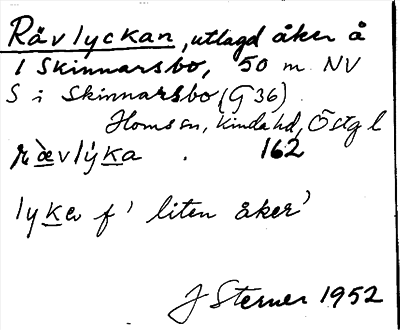 Rävlyckan, utlagd åker å
1 Skinnarsbo, 50 m NV
S i Skinnarsbo (G 36).
Hom sn, Kinda hd, Östg l
ræ̀vlýka . 162
lyka f 'liten åker'
J Sterner 1952